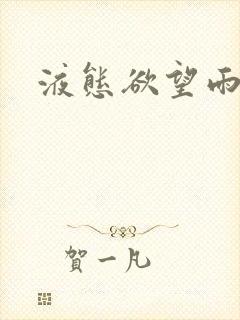 液態欲望雨
賀一凡